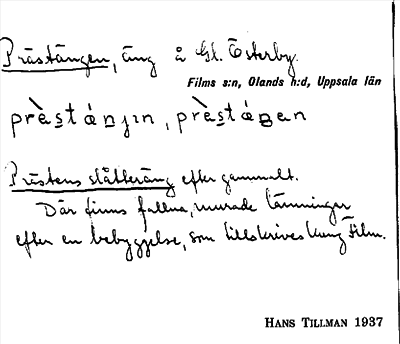 Prästängen, äng å Gl. Österby.
Films s:n, Olands h:d, Uppsala län
prὲstáŋɟın, prὲstáŋen
Prästens slåtteräng efter gammalt.
Där finns fallna, murade lämningar
efter en bebyggelse, som tillskrives kung Film.
HANS TILLMAN 1937